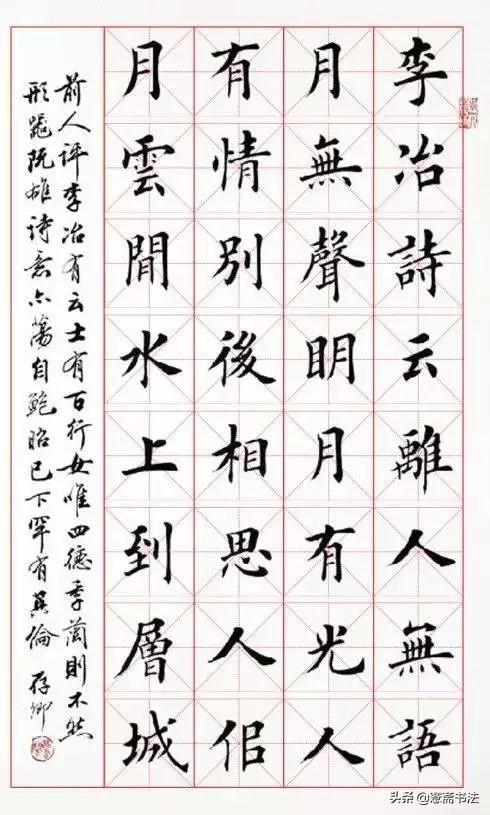 李冶詩云離人無語
月無聲明月有光人
有情別後相思人佀
月雲間水上到層城
前人評李冶有云士有百行女唯四德季蘭則不然
形氣既雄詩意亦蕩自鮑昭已下罕有其倫 存卿
头条 @憲斋书法